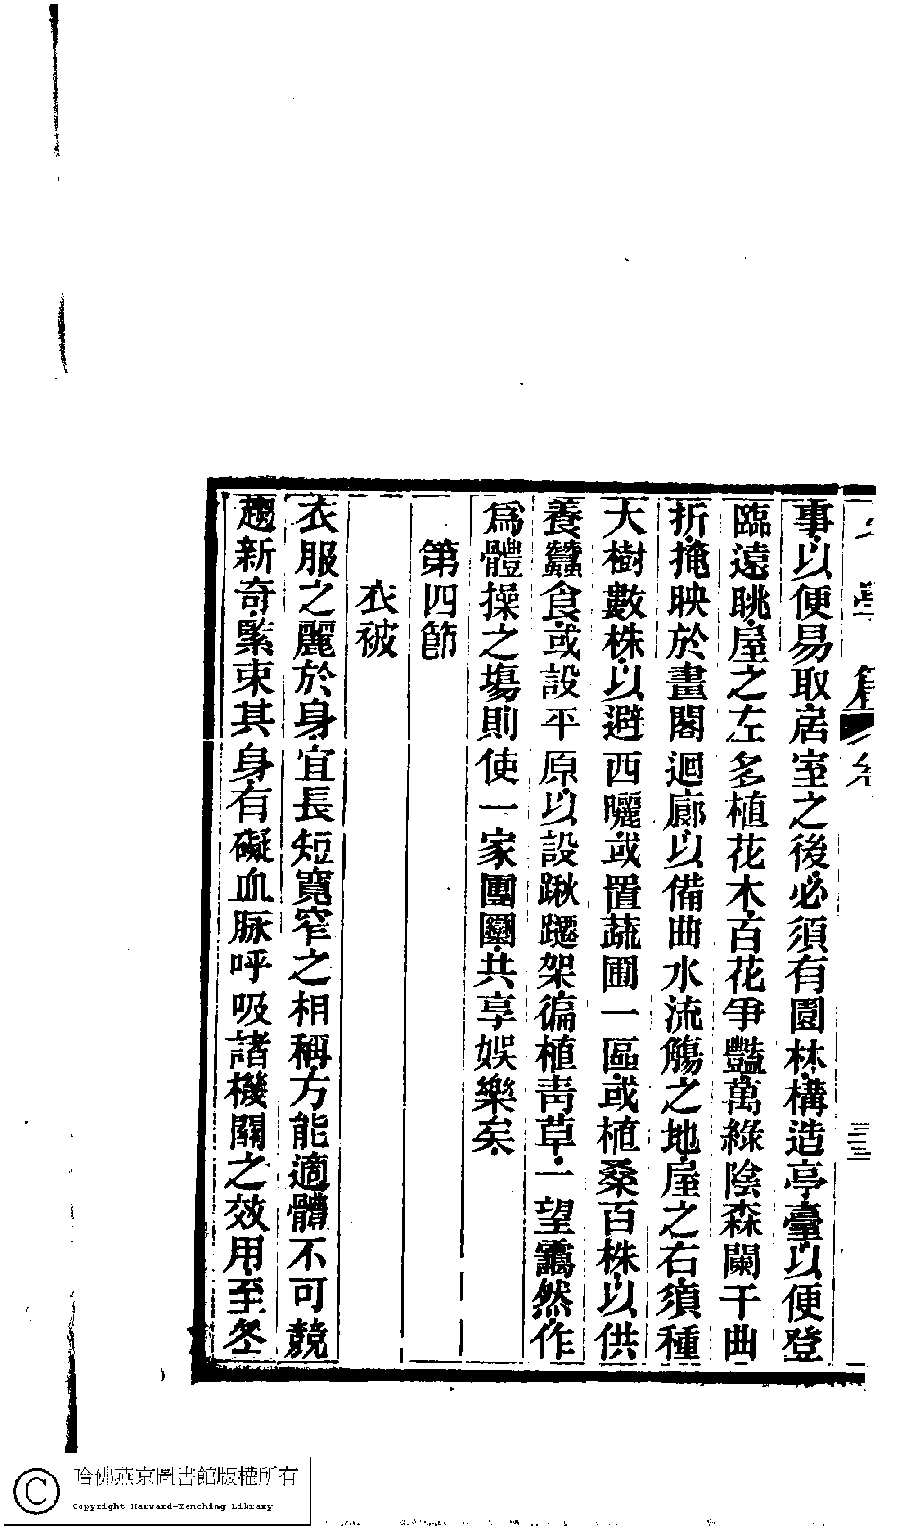 事以便易取居室之後必須有園林構造亭臺以便登
臨遠眺屋之左多植花木百花爭豔萬綠陰森闌干曲
折掩映於畫閣迴廊以備曲水流觴之地屋之右須種
大樹數株以避西曬或置蔬圃一區或植桑百株以供
養蠶食或設平原以設鞦韆架徧植靑草一望靄然作
爲體操之塲則使一家團圞共享娛樂矣
第四節
衣被
衣服之麗於身宜長短寬窄之相稱方能適體不可競
趨新奇緊束其身有礙血脈呼吸諸機關之效用至冬
哈佛燕京圖書館版權所有
Copyright Harvard-Yenching Library